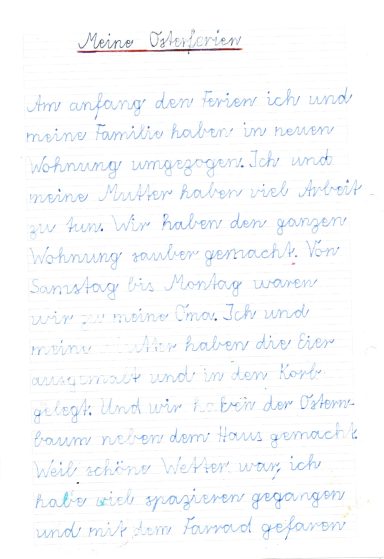 Meine Osterferien
Am anfang den Ferien ich und
meine Familie haben in neuen
Wohnung umgezogen. Ich und
meine Mutter haben viel Arbeit
zu tun. Wir haben den ganzen
Wohnung sauber gemacht. Von
Samstag bis Montag waren
wir zu meine Oma. Ich und
meine Mutter haben die Eier
ausgemalt und in den Korb
gelegt. Und wir haben der Ostern-
baum neben dem Haus gemacht.
Weil schöne Wetter war, ich
habe viel spazieren gegangen
und mit dem Farrad gefaren